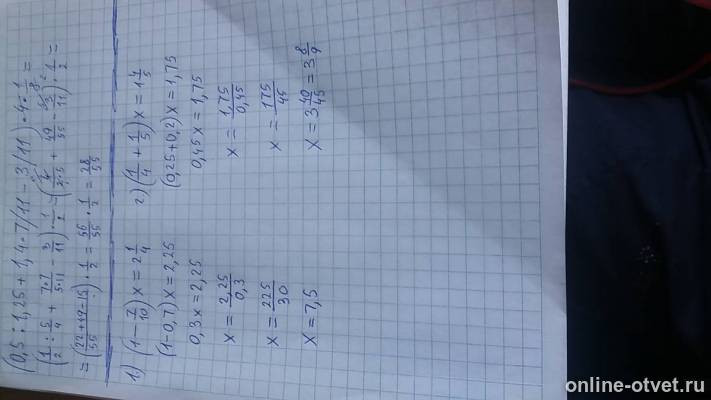 (0,5 : 1,25 + 1,4 · 7/11 − 3/11) · 4 · 1/8 =
(1/2 : 5/4 + 7·7/5·11 − 3/11) · 1/2 = (2/5 + 49/55 − 3/11) · 1/2 =
= (22+49−15/55) · 1/2 = 56/55 · 1/2 = 28/55
1) (1 − 7/10) x = 2 1/4
(1−0,7) x = 2,25
0,3x = 2,25
x = 2,25/0,3
x = 225/30
x = 7,5
2) (1/4 + 1/5) x = 1
(0,25+0,2) x = 1,75
0,45x = 1,75
x = 1,75/0,45
x = 175/45
x = 3 40/45 = 3 8/9
online-otvet.ru